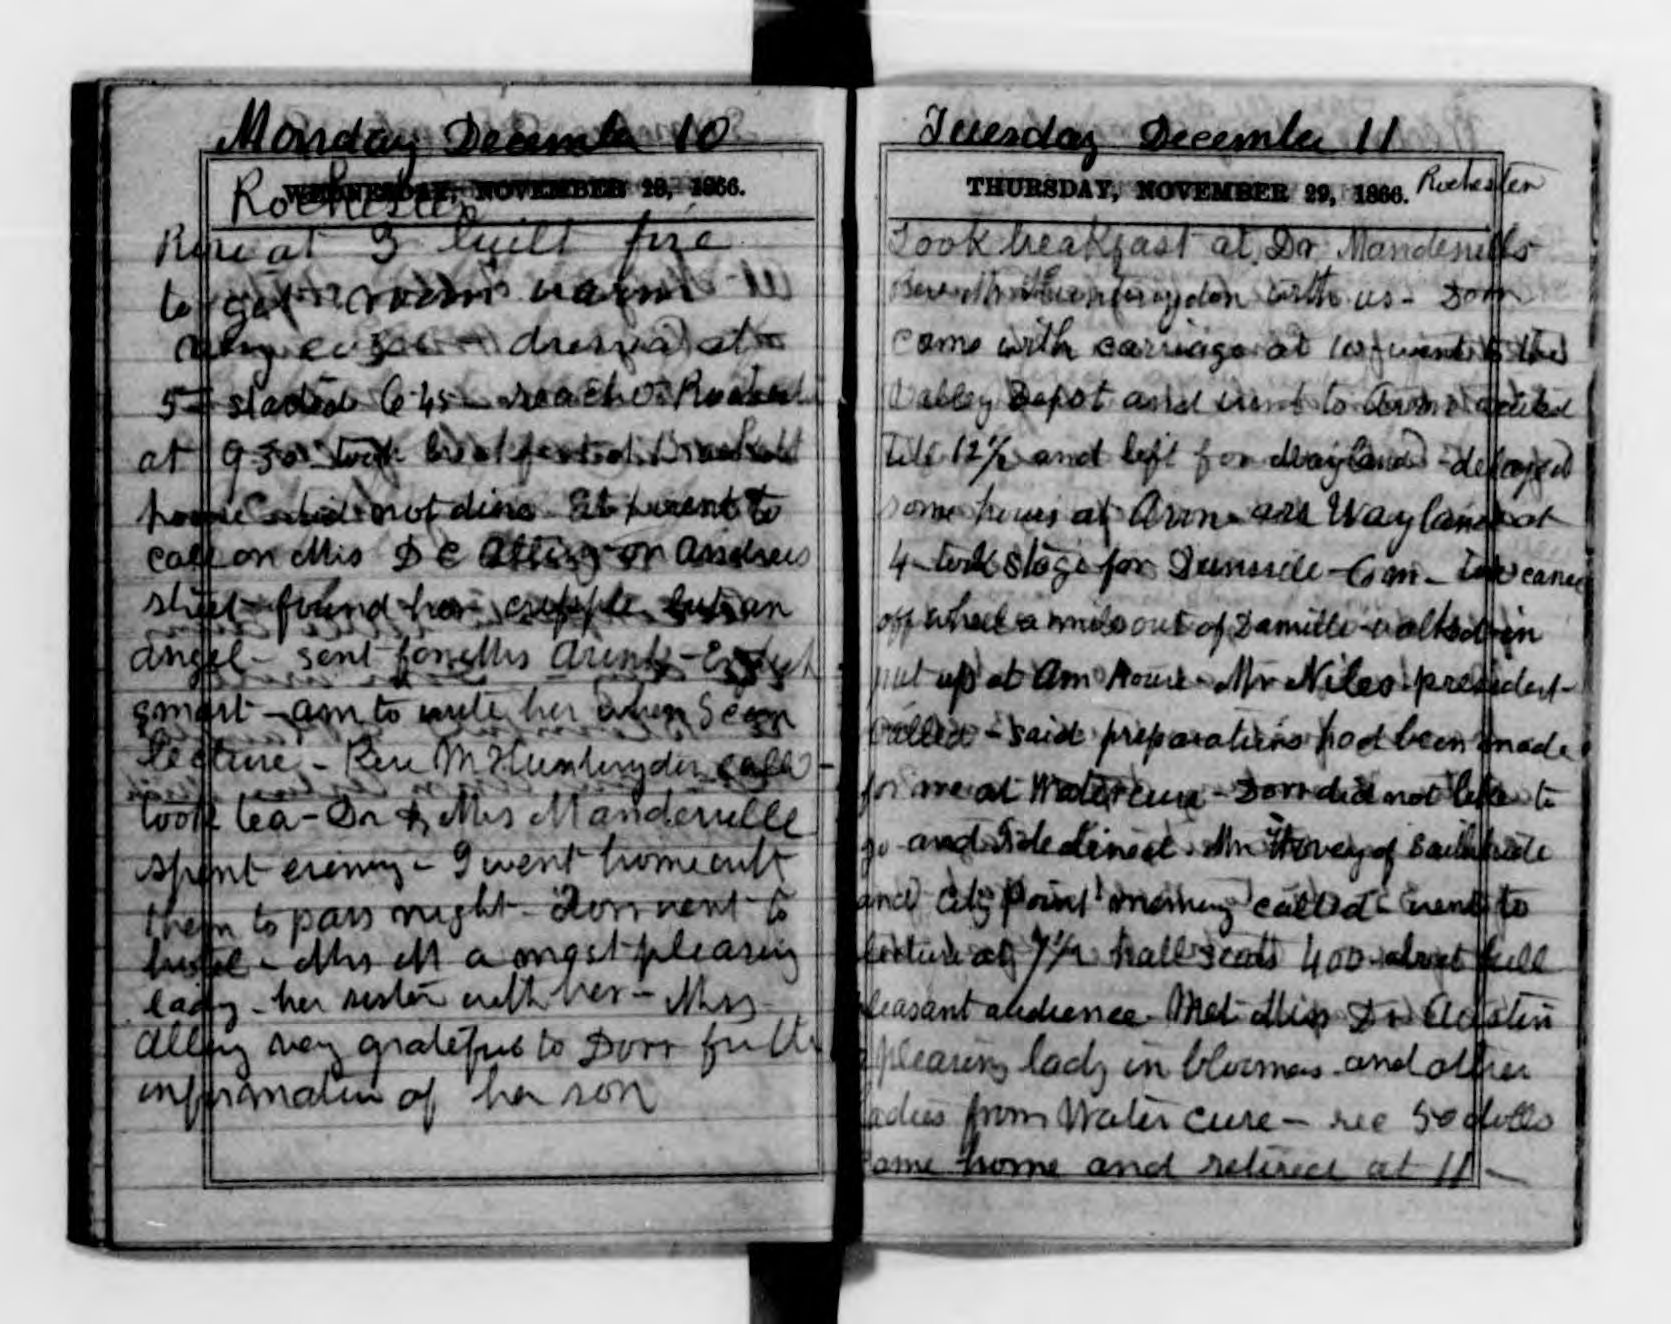 Monday December 10
WEDNESDAY, NOVEMBER 28, 1866.
Rochester
Rose at 3 built fire
to get room warm
dressed at
5 - started 6.45 - reach Rochester
at 9.30 took breakfast at Brackett
house did not dine at went to
call on Mrs D C Alling on Andrews
street found her cripple but an
angel - sent for Mrs
smart - am to write her when I can
lecture - Rev Mr Huntingdon call -
took tea - Dr & Mrs Mandeville
spent evening - I went home with
them to pass night - Dorr went to
hotel - Mrs M a most pleasing
lady - her sister with her - Mrs
Alling very grateful to Dorr for the
information of her son
Tuesday December 11
THURSDAY, NOVEMBER 29, 1866.
Rochester
Took breakfast at Dr Mandevills
Rev Mr Huntingdon with us - Dorr
came with carriage at 10 went to the
Valley Depot and went to Avon waited
till 12 1/2 and left for Wayland - delayed
some hours at Avon arr Wayland at
4 - took stage for Dansville - 6 m - came
off wheel a mile out of Danville walked in
put up at Am House - Mr Niles president -
called - said preparations had been made
for me at Water cure - Dorr did not like to
go and I declined. Mr Hovey of
and City Point called - went to
lecture at 7 1/2 hall seats 400 about full
pleasant audience. Met Miss Dr Austin
a pleasing lady in bloomers and other
ladies from Water cure - rec 50 dolls
came home and retired at 11 -